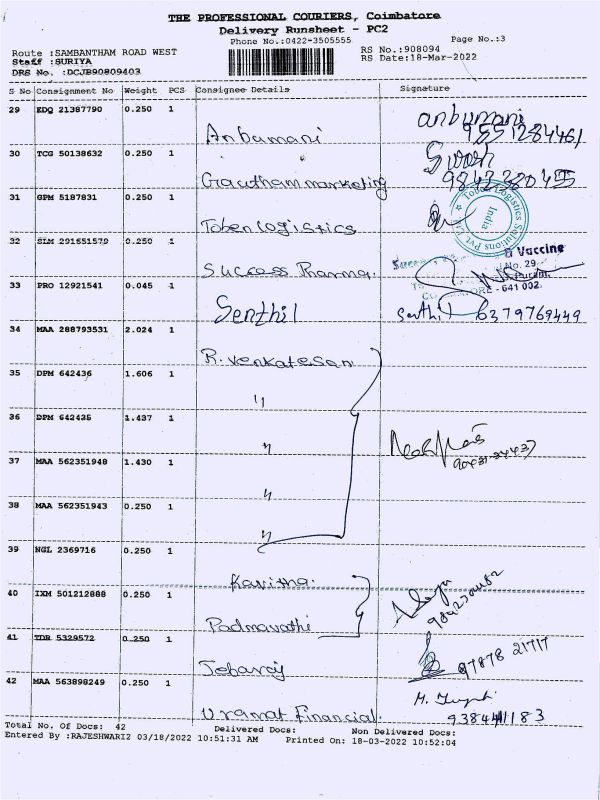 THE PROFESSIONAL COURIERS, Coimbatore
Delivery Runsheet - PC2
Phone No.:0422-3505555
Page No.:3
Route :SAMBANTHAM ROAD WEST
RS No.:908094
Staff :SURIYA
RS Date:18-Mar-2022
DRS No. :DCJB90809403
S No Consignment No Weight PCS Consignee Details Signature
29 EDQ 21387790 0.250 1
Anbumani anbumani
30 TCG 50138632 0.250 1
Grautham marketing 9842320455
31 GPM 5187831 0.250 1
Toben Logistics
Toben Logistics Solutions Pvt. Ltd. India
32 SLM 291651579 0.250 1
Success Pharma. & Vaccine
No. 29
- 641 002
33 PRO 12921541 0.045 1
Senthil Senthil 6379769449
34 MAA 288793531 2.024 1
R. Venkatesan
35 DPM 642436 1.606 1
"
36 DPM 642435 1.437 1
"
37 MAA 562351948 1.430 1
"
38 MAA 562351943 0.250 1
"
39 NGL 2369716 0.250 1
Kavitha.
40 IXM 501212888 0.250 1
Padmavathi
41 TDR 5329572 0.250 1
Jebaraj 97878 21717
42 MAA 563898249 0.250 1
Financial.
Total No. Of Docs: 42 Delivered Docs: Non Delivered Docs:
Entered By :RAJESHWARI2 03/18/2022 10:51:31 AM Printed On: 18-03-2022 10:52:04